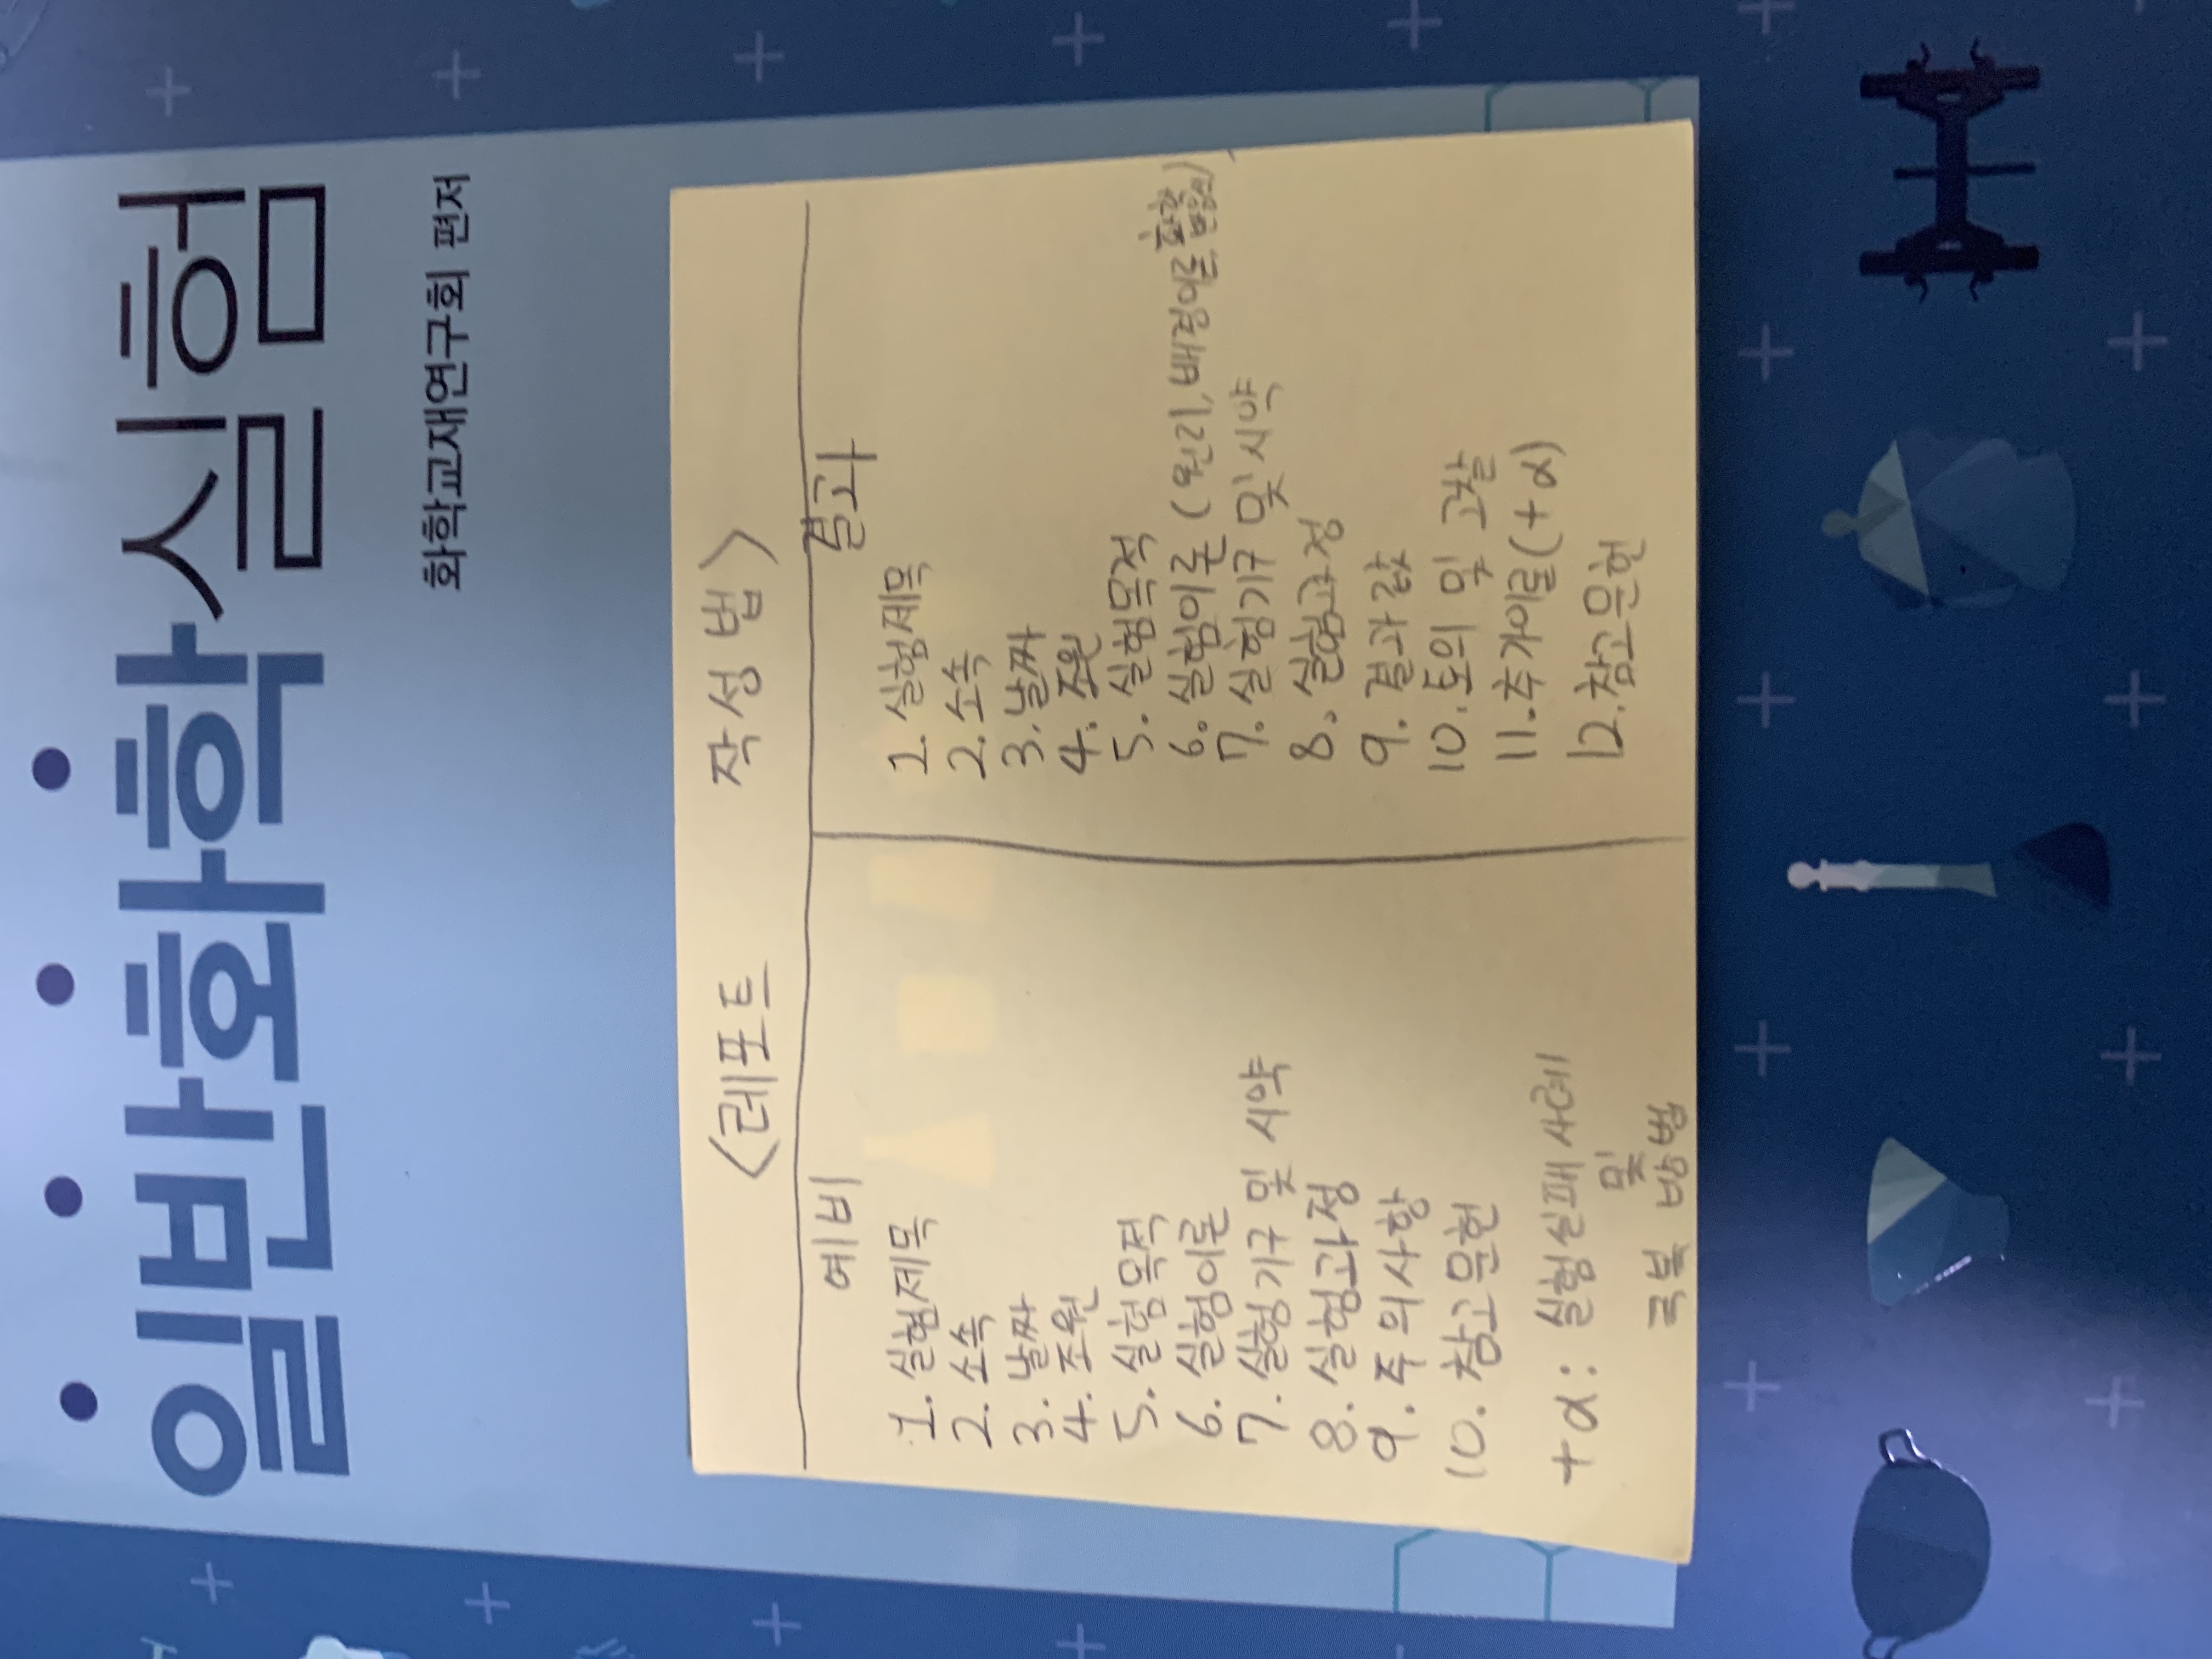 일반화학실험
화학교재연구회 편저
<레포트 작성법>
예비
1. 실험제목
2. 소속
3. 날짜
4. 조원
5. 실험목적
6. 실험이론
7. 실험기구 및 시약
8. 실험과정
9. 주의사항
10. 참고문헌
+α: 실험실패사례
및
극복 방법
결과
1. 실험제목
2. 소속
3. 날짜
4. 조원
5. 실험목적
6. 실험이론 (원리, 배경이론, 화학반응식)
7. 실험기구 및 시약
8. 실험과정
9. 결과값
10. 토의 및 고찰
11. 추가이론(+α)
12. 참고문헌